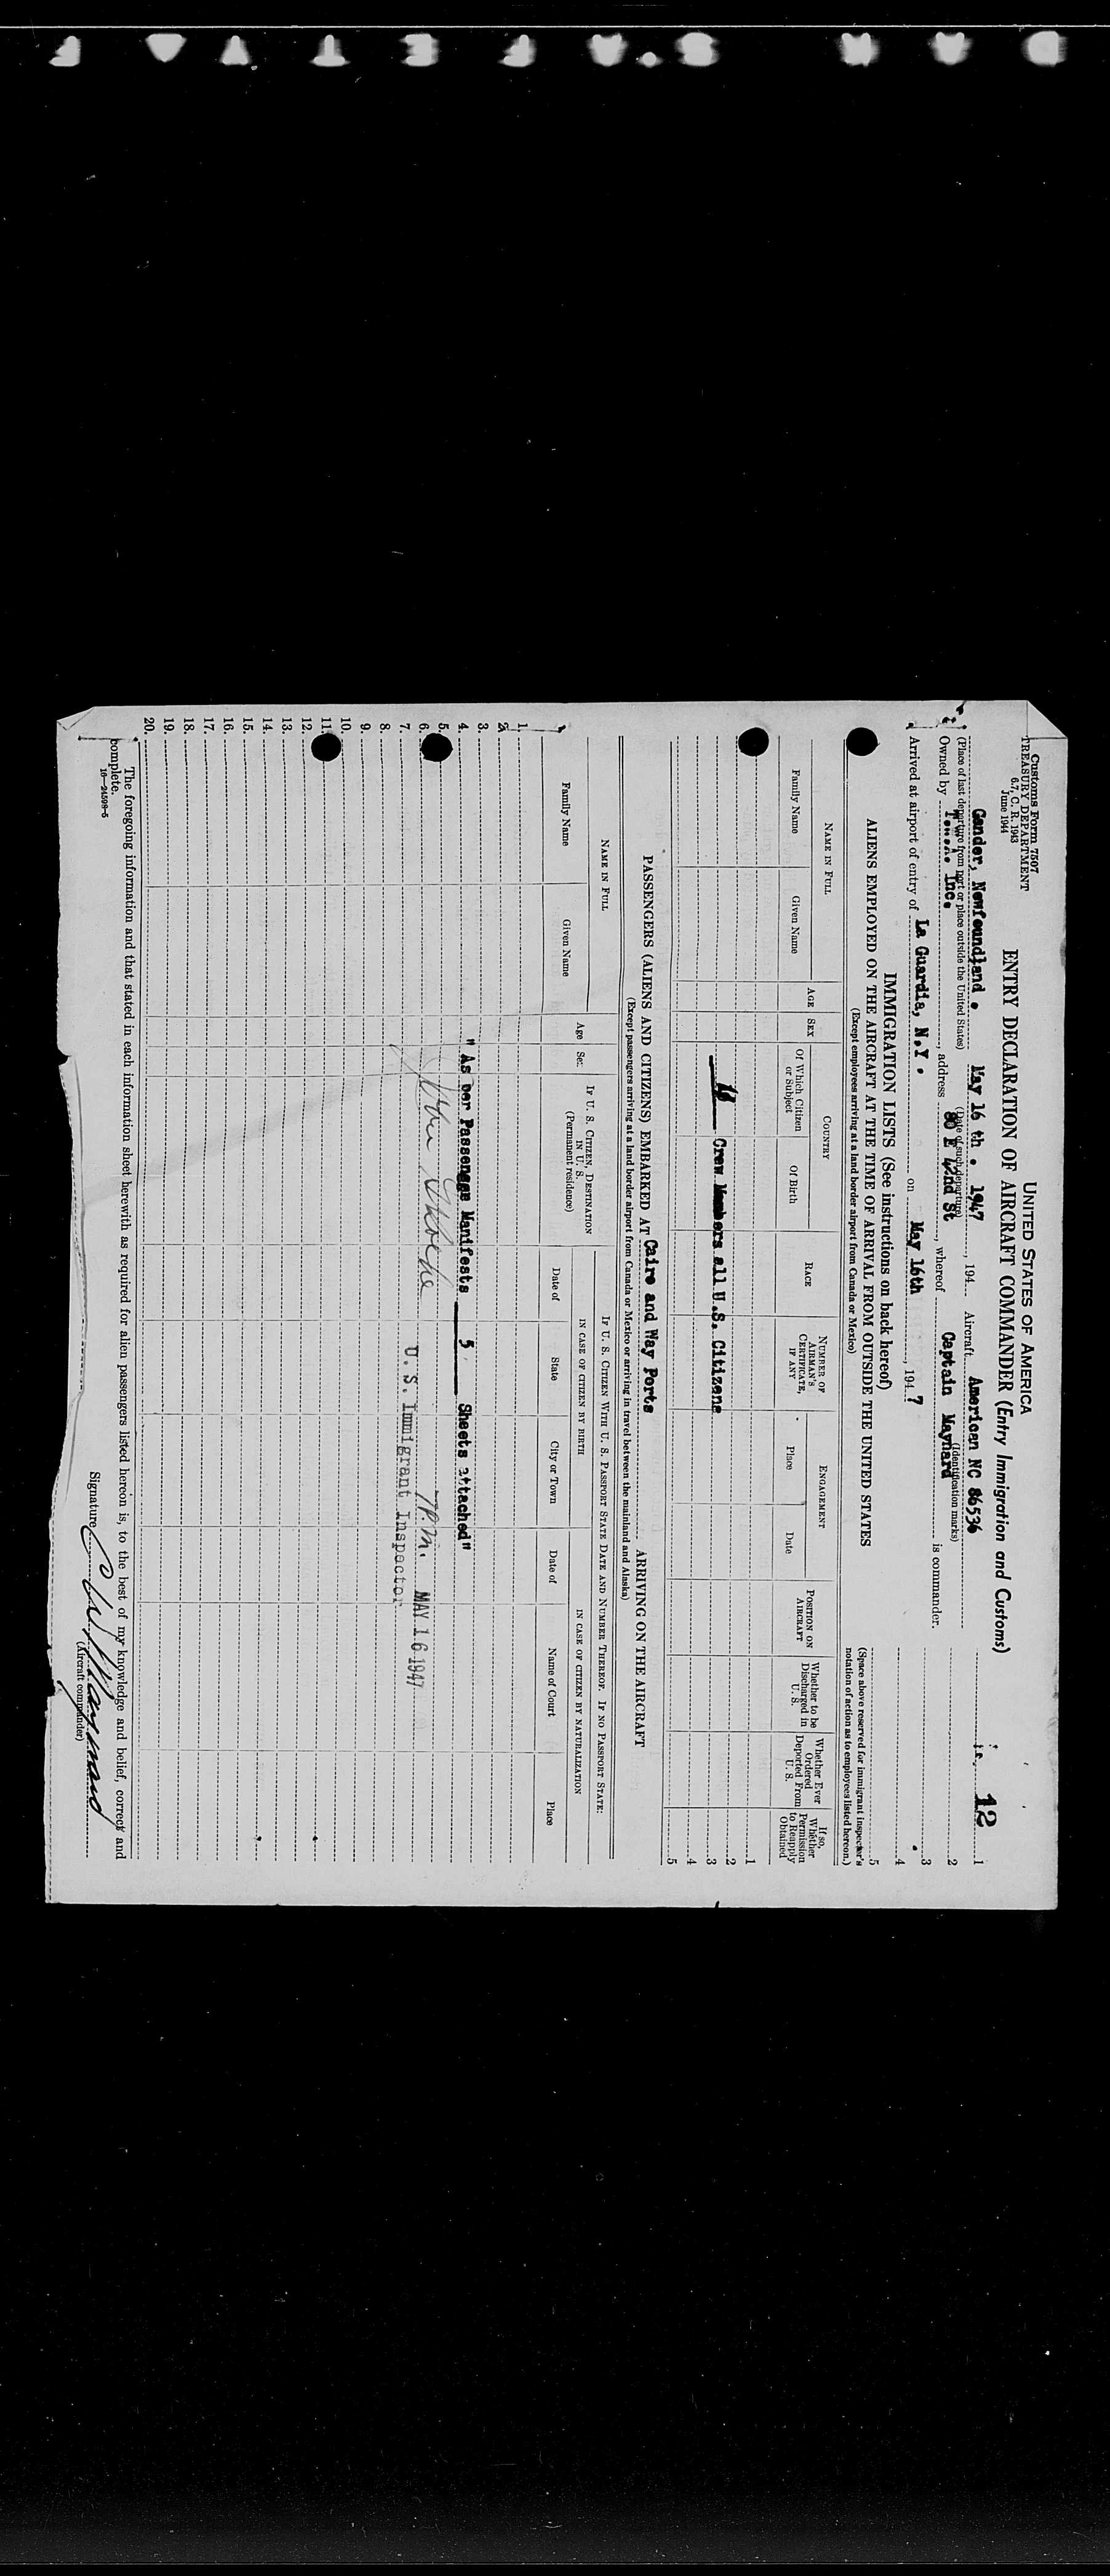 Customs Form 7507
TREASURY DEPARTMENT
6.7, C. R. 1943
June 1944
UNITED STATES OF AMERICA
ENTRY DECLARATION OF AIRCRAFT COMMANDER (Entry Immigration and Customs)
12
Gander, Newfoundland. May 16 th. 1947, 194 Aircraft American NC 86536
(Place of last departure from port or place outside the United States) (Date of such departure) (Identification marks)
Owned by T.W.A. Inc. , address 80 E 42nd St , whereof Captain Maynard is commander.
Arrived at airport of entry of La Guardia, N.Y. on May 16th , 194 7
1
2
3
4
5
(Space above reserved for immigrant inspector's notation of action as to employees listed hereon.)
IMMIGRATION LISTS (See instructions on back hereof)
ALIENS EMPLOYED ON THE AIRCRAFT AT THE TIME OF ARRIVAL FROM OUTSIDE THE UNITED STATES
(Except employees arriving at a land border airport from Canada or Mexico)
NAME IN FULL AGE SEX COUNTRY RACE NUMBER OF AIRMAN'S CERTIFICATE, IF ANY ENGAGEMENT POSITION ON AIRCRAFT Whether to be Discharged in U. S. Whether Ever Ordered Deported From U. S. If so, Whether Permission to Reapply Obtained
Family Name Given Name Of Which Citizen or Subject Of Birth Place Date
1
2
Crew Members all U.S. Citizens 3
4
5
PASSENGERS (ALIENS AND CITIZENS) EMBARKED AT Cairo and Way Ports ARRIVING ON THE AIRCRAFT
(Except passengers arriving at a land border airport from Canada or Mexico or arriving in travel between the mainland and Alaska)
NAME IN FULL Age Sex IF U. S. CITIZEN, DESTINATION IN U. S. (Permanent residence) IF U. S. CITIZEN WITH U. S. PASSPORT STATE DATE AND NUMBER THEREOF. IF NO PASSPORT STATE:
IN CASE OF CITIZEN BY BIRTH IN CASE OF CITIZEN BY NATURALIZATION
Family Name Given Name Date of State City or Town Date of Name of Court Place
1
2
3.
4. " As per Passenger Manifests 5 Sheets attached"
5.
6. 7PM. MAY 16 1947
7. U. S. Immigrant Inspector
8.
9.
10.
11.
12.
13.
14.
15.
16.
17.
18.
19.
20.
The foregoing information and that stated in each information sheet herewith as required for alien passengers listed hereon is, to the best of my knowledge and belief, correct and
complete.
16—24598-5
Signature C W Maynard
(Aircraft commander)